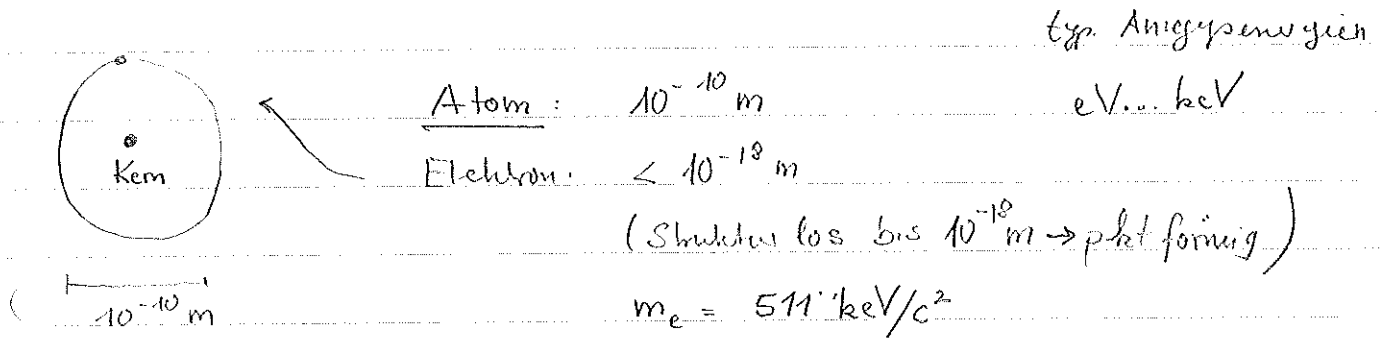 typ. Anregungsenergien
Atom : 10^-10 m eV... keV
Kern
Elektron: < 10^-18 m
(Struktur los bis 10^-18 m → pktförmig)
10^-10 m
m_e = 511 keV/c^2